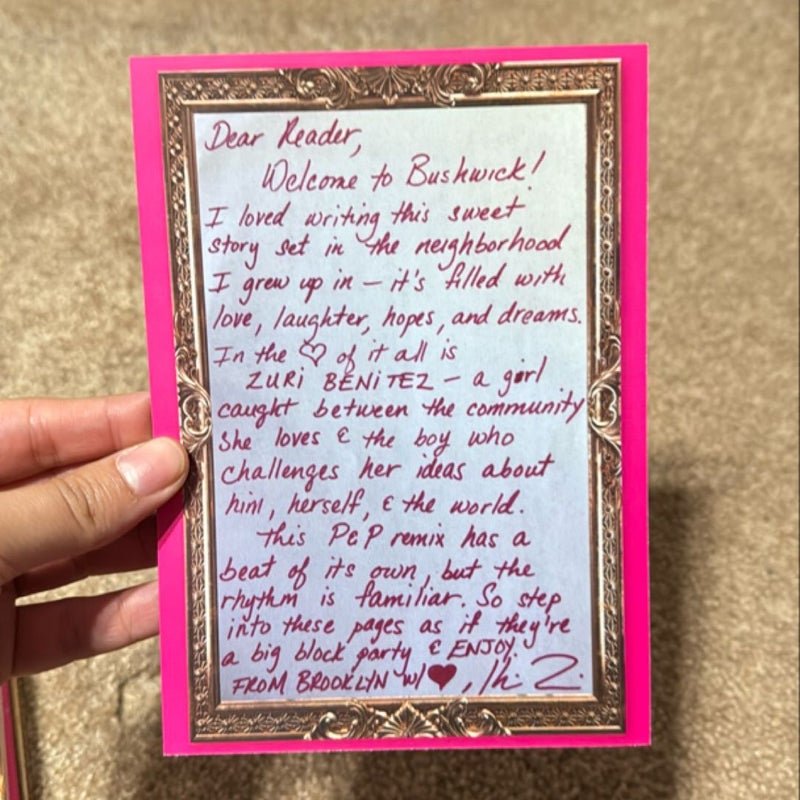 Dear Reader,
Welcome to Bushwick!
I loved writing this sweet
story set in the neighborhood
I grew up in – it's filled with
love, laughter, hopes, and dreams.
In the ♡ of it all is
ZURI BENITEZ – a girl
caught between the community
she loves & the boy who
challenges her ideas about
him, herself, & the world.
This P&P remix has a
beat of its own, but the
rhythm is familiar. So step
into these pages as if they're
a big block party & ENJOY.
FROM BROOKLYN w/ ♥,